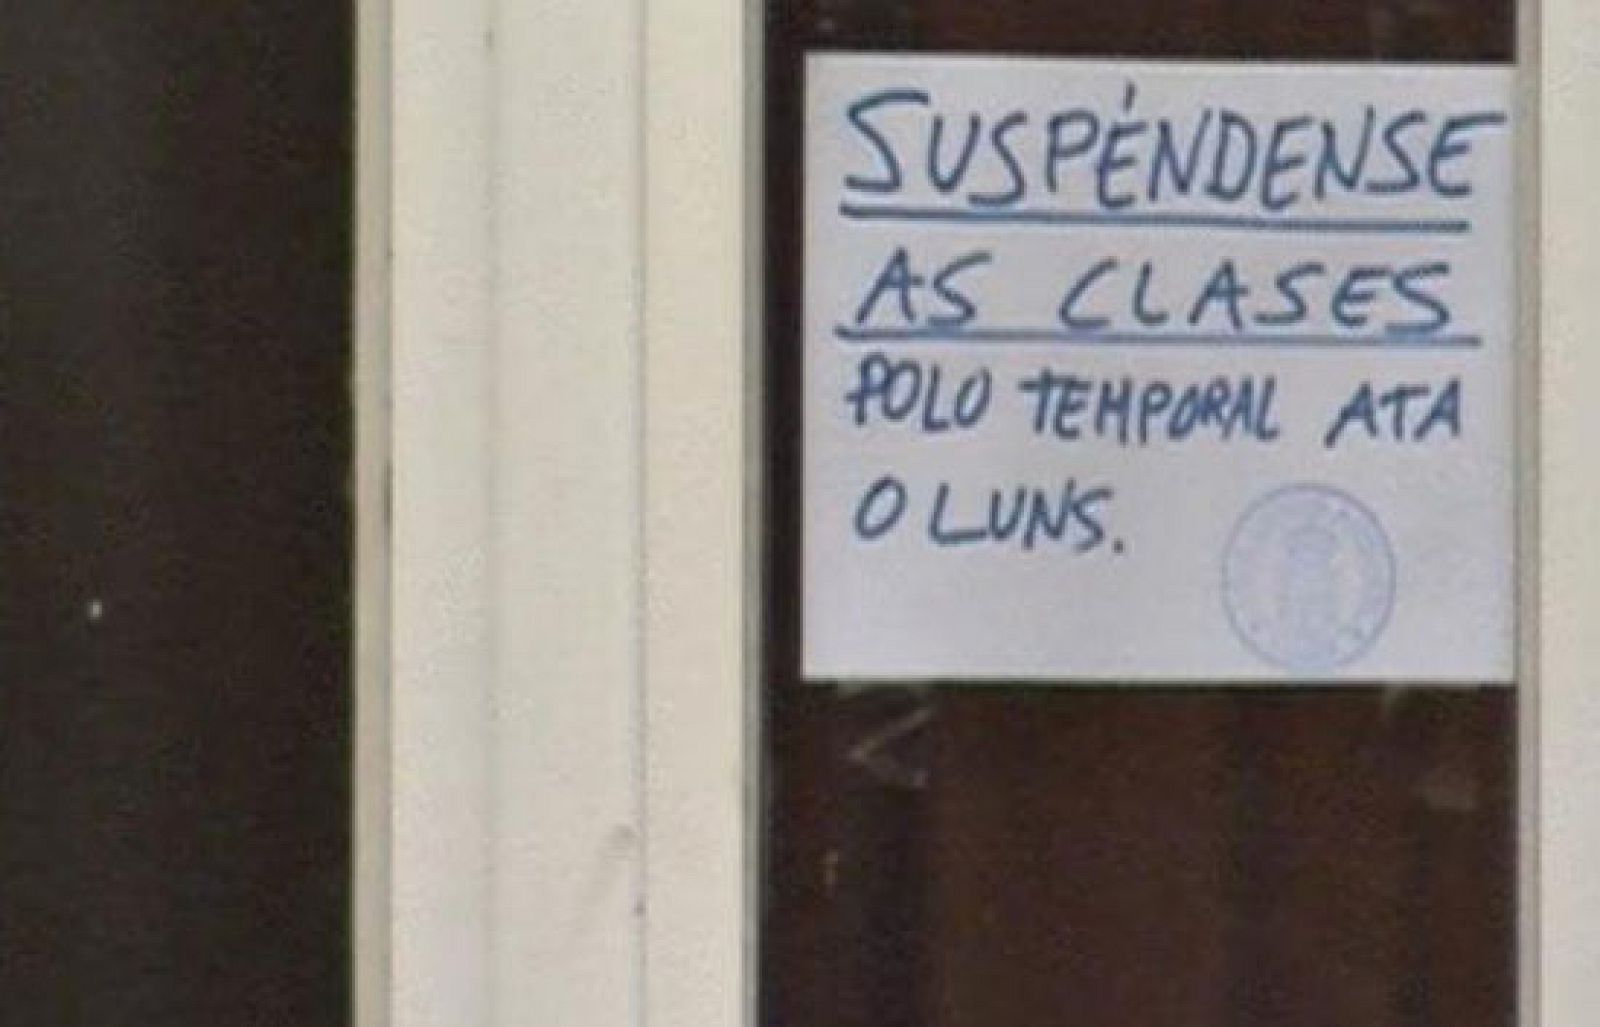 SUSPÉNDENSE
AS CLASES
POLO TEMPORAL ATA
O LUNS.